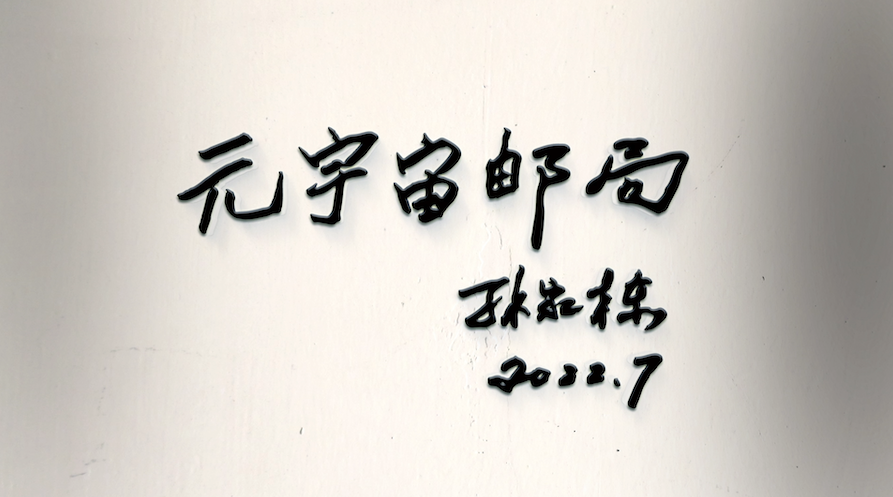 元宇宙邮局
孙家栋
2022.7